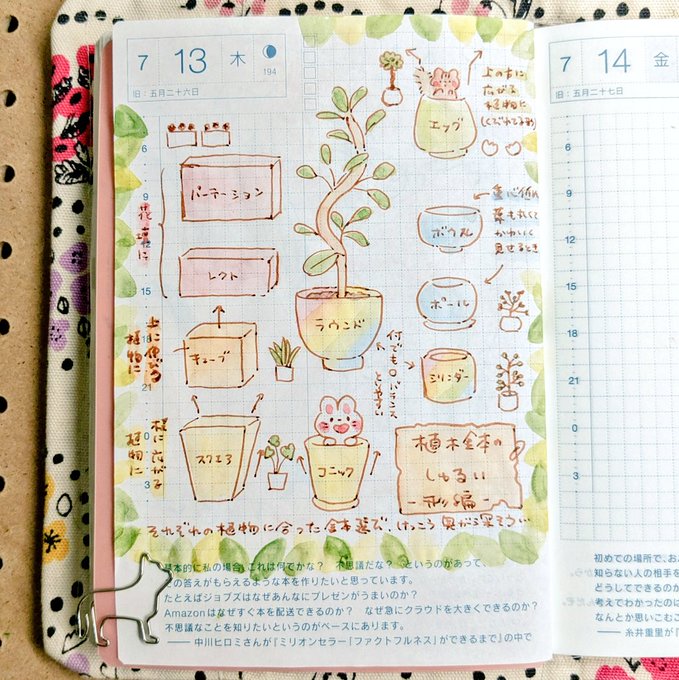 7 13 木 194
旧：五月二十六日
6
9
12
15
18
21
0
3
パーテーション
レクト
キューブ
スクエア
花壇に
上に伸びる
植物に
横に広がる
植物に
ラウンド
何でも○バランス
とりやすい
コニック
エッグ
上の方に
広がる
植物に
(くびれてる分)
ボウル
ボール
シリンダー
重心低め
葉も丸くて
かわいく
見せるとき
植木鉢の
しゅるい
-形編-
それぞれの植物に合った鉢選で、けっこう奥が深そう…
基本的に私の場合、これは何でかな？　不思議だな？　というのがあって、
の答えがもらえるような本を作りたいと思っています。
たとえばジョブズはなぜあんなにプレゼンがうまいのか？
Amazonはなぜすぐ本を配送できるのか？　なぜ急にクラウドを大きくできるのか？
不思議なことを知りたいというのがベースにあります。
——中川ヒロミさんが『ミリオンセラー「ファクトフルネス」ができるまで』の中で
7 14 金
旧：五月二十七日
6
9
12
15
18
21
0
3
初めての場所で、お
知らない人の相手を
どうしてできるのか
考えてわかったのは
なんとか思いこむこ
——糸井重里が『